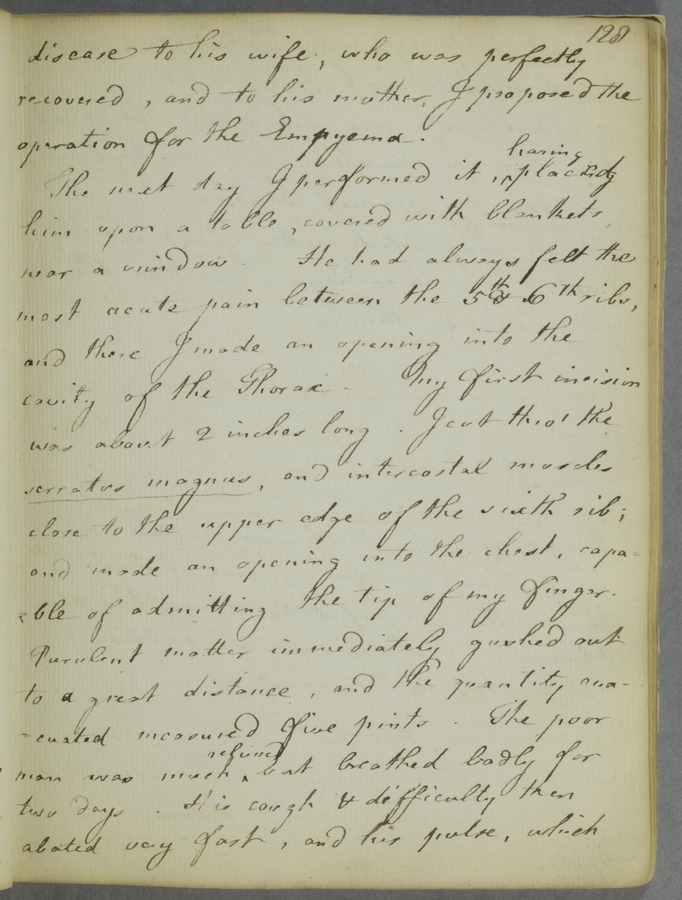 128
disease to his wife, who was perfectly
recovered, and to his mother, I proposed the
operation for the Empyema.
having
The next day I performed it, placing
him upon a table, covered with blankets,
near a window. He had always felt the
most acute pain between the 5th & 6th ribs,
and there I made an opening into the
cavity of the Thorax. My first incision
was about 2 inches long. I cut thro' the
serratus magnus, and intercostal muscles
close to the upper edge of the sixth rib;
and made an opening into the chest, capa=
=ble of admitting the tip of my finger.
Purulent matter immediately gushed out
to a great distance, and the quantity eva-
-cuated measured five pints. The poor
relieved
man was much, but breathed badly for
two days. His cough & difficulty then
abated very fast, and his pulse, which